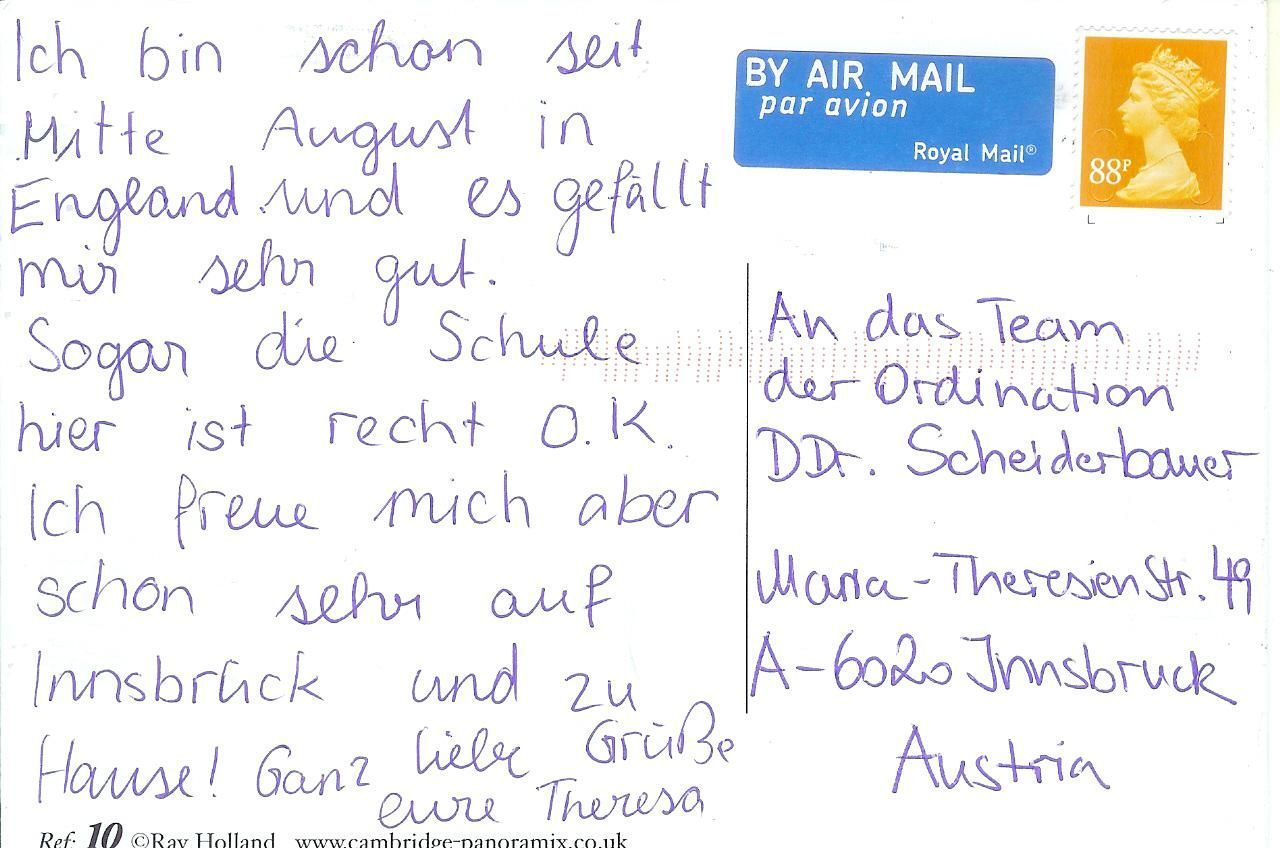 Ich bin schon seit
Mitte August in
England und es gefällt
mir sehr gut.
Sogar die Schule
hier ist recht O.K.
Ich freue mich aber
schon sehr auf
Innsbrück und zu
Hause! Ganz liebe Grüße
eure Theresa
Ref: 10 ©Ray Holland www.cambridge-panoramix.co.uk
BY AIR MAIL
par avion
Royal Mail®
88P
An das Team
der Ordination
DDr. Scheiderbauer
Maria-Theresienstr. 49
A-6020 Innsbruck
Austria